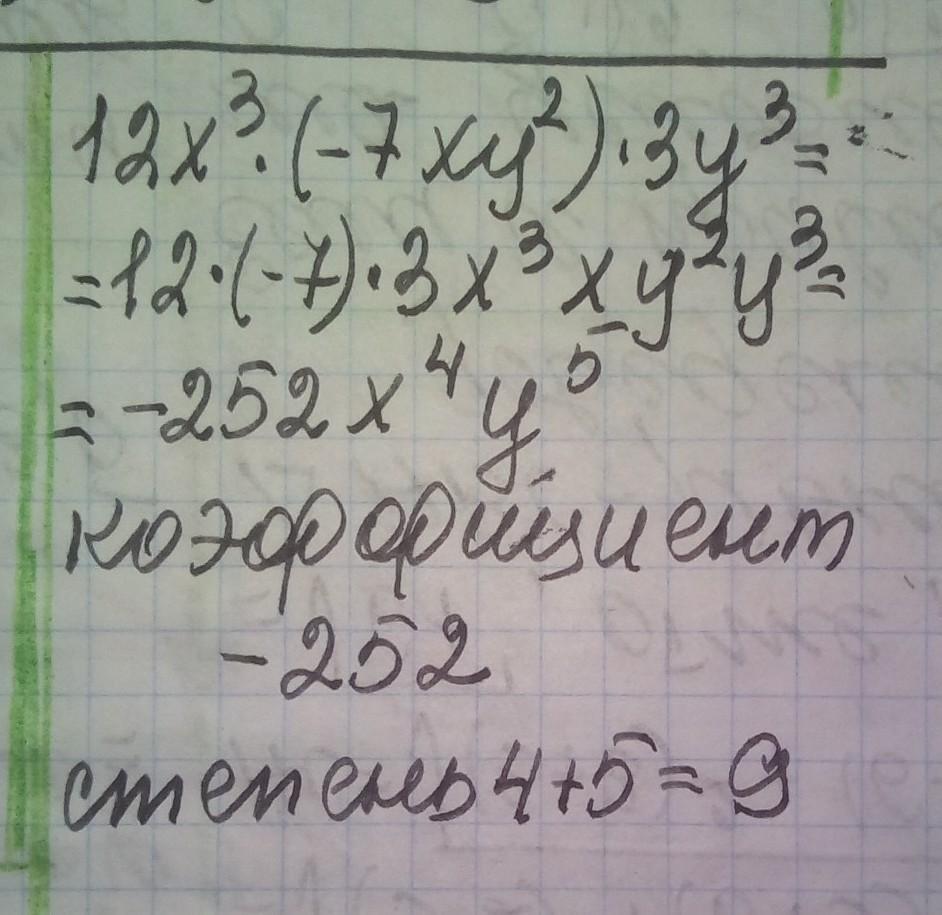 12x³·(-7xy²)·3y³=
=12·(-7)·3x³xy²y³=
=-252x⁴y⁵
коэффициент
-252
степень 4+5=9